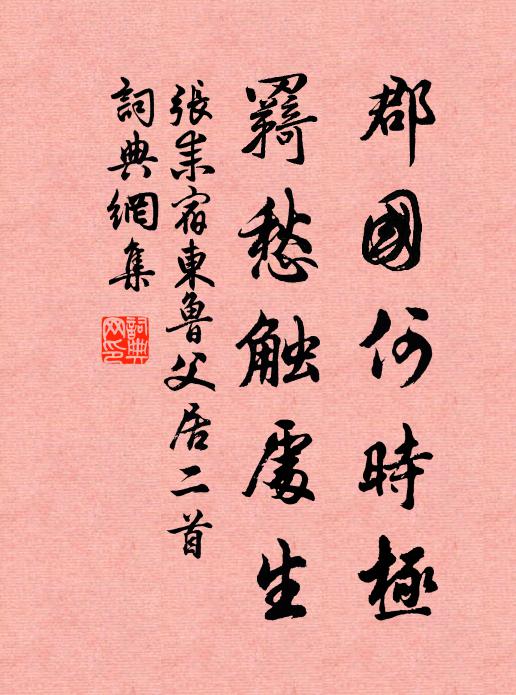 郡國何時極
羇愁触處生
張耒宿東魯父居二首
詞典網集
詞典网印